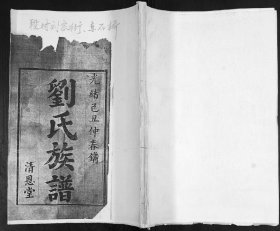 光緒己丑仲春鐫
劉氏族譜
清恩堂